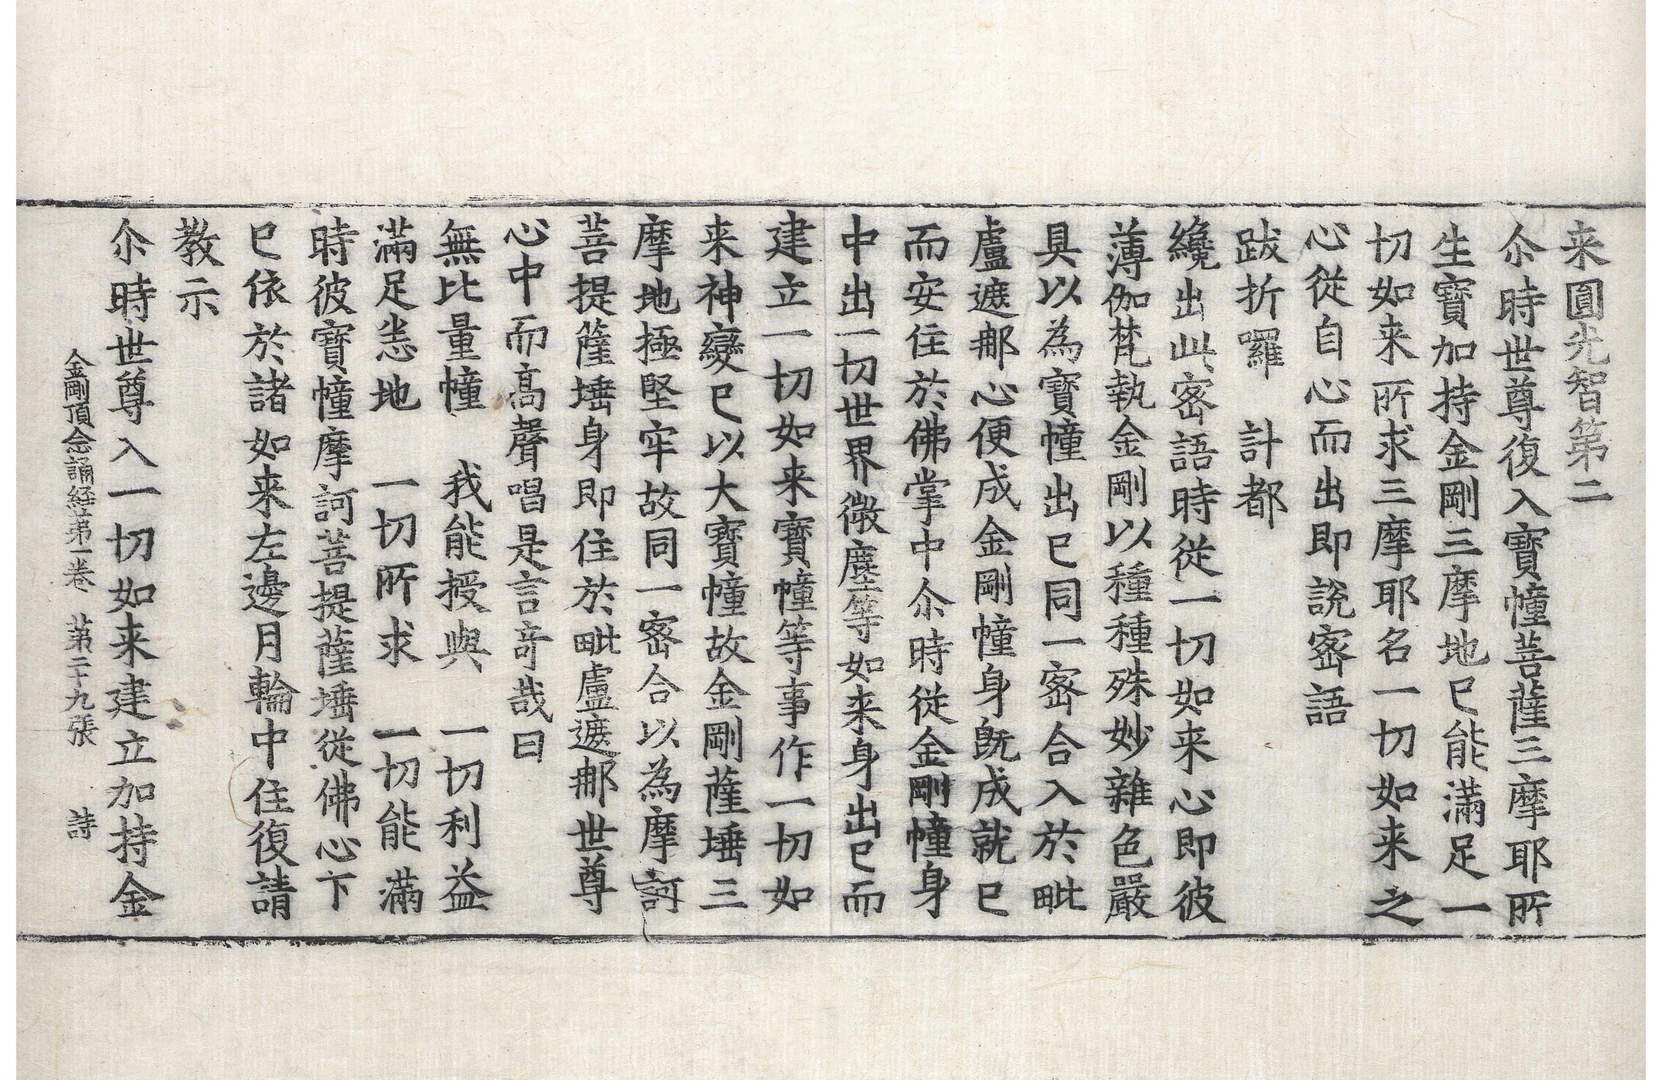 来圓光智第二
尒時世尊復入寶幢菩薩三摩耶所
生寶加持金剛三摩地已能滿足一
切如来所求三摩耶名一切如来之
心從自心而出即說密語
跋折囉　計都
纔出此密語時從一切如来心即彼
薄伽梵執金剛以種種殊妙雜色嚴
具以為寶幢出已同一密合入於毗
盧遮那心便成金剛幢身旣成就已
而安住於佛掌中尒時從金剛幢身
中出一切世界微塵等如来身出已而
建立一切如来寶幢等事作一切如
来神變已以大寶幢故金剛薩埵三
摩地極堅牢故同一密合以為摩訶
菩提薩埵身即住於毗盧遮那世尊
心中而高聲唱是言奇哉曰
無比量幢　我能授與　一切利益
滿足恙地　一切所求　一切能滿
時彼寶幢摩訶菩提薩埵從佛心下
已依於諸如来左邊月輪中住復請
教示
尒時世尊入一切如来建立加持金
金剛頂念誦経第一卷　第二十九張　詩